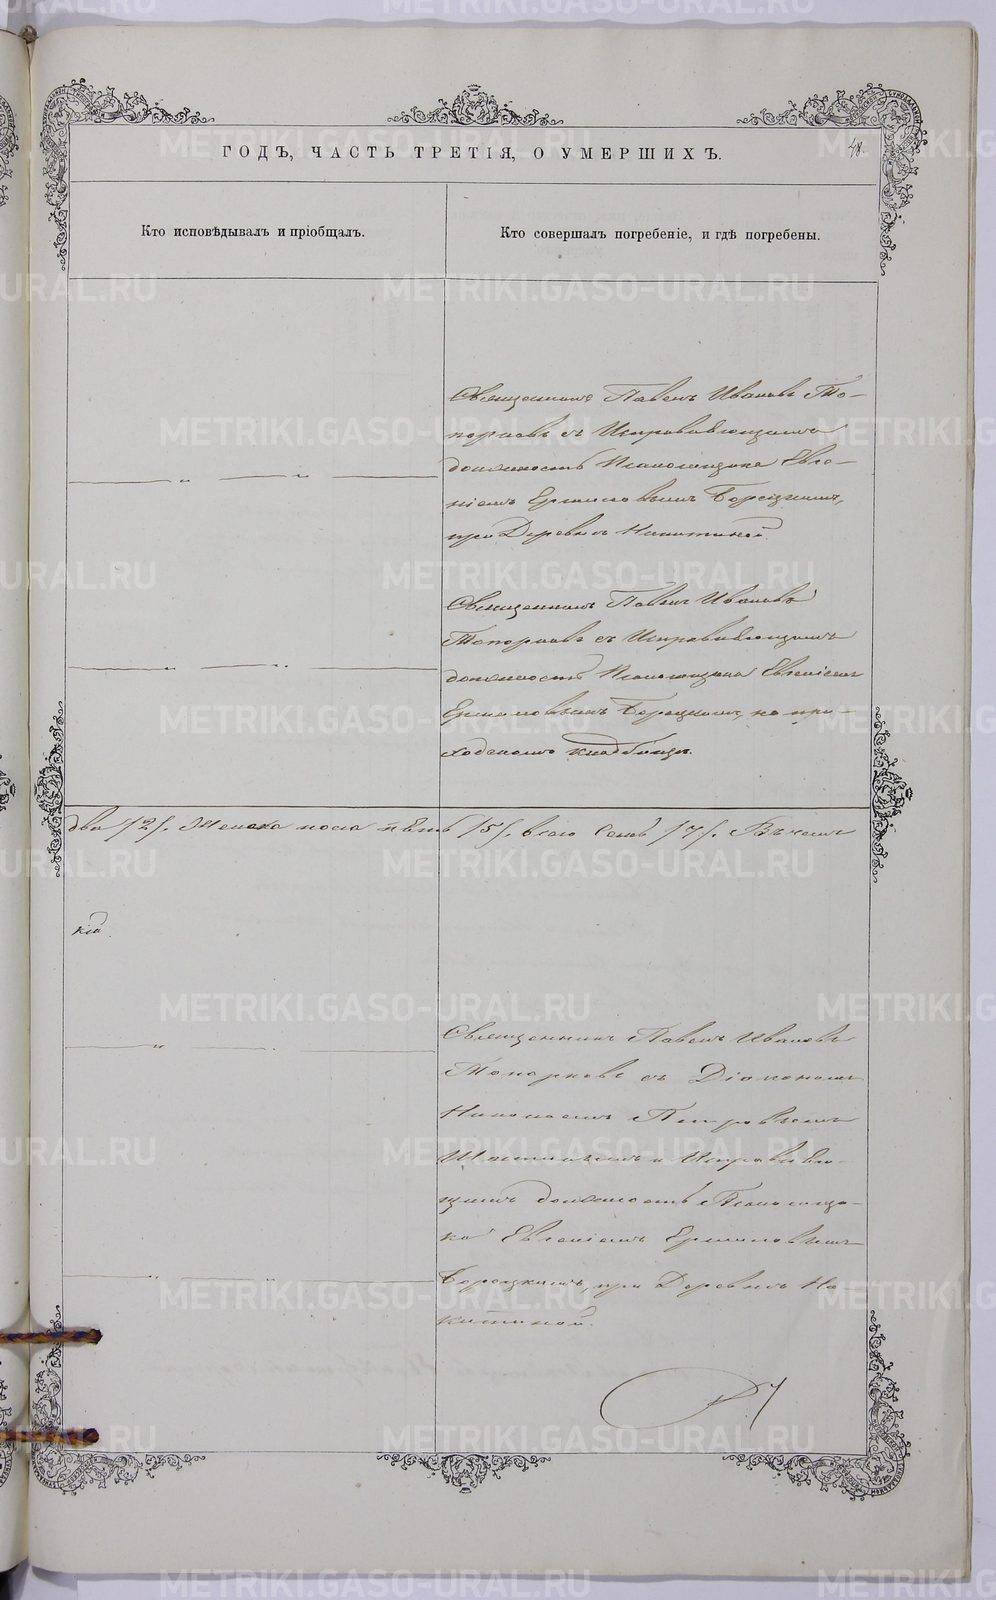 ГОДЪ, ЧАСТЬ ТРЕТІЯ, О УМЕРШИХЪ.
48.
Кто исповѣдывалъ и пріобщалъ.
Кто совершалъ погребеніе, и гдѣ погребены.
Священникъ Павелъ Ивановъ То-
порковъ съ Исправляющимъ
должность Псаломщика Евге-
ніемъ Ермиловымъ Борецкимъ,
при Деревнѣ Никитиной.
Священникъ Павелъ Ивановъ
Топорковъ съ Исправляющимъ
должность Псаломщика Евгеніемъ
Ермиловымъ Борецкимъ, на при-
ходскомъ кладбищѣ.
два /2/. Женска пола пять /5/. всего семь /7/. Въ чемъ
кій.
Священникъ Павелъ Ивановъ
Топорковъ съ Діакономъ
Николаемъ Петровымъ
и Исправляю-
щимъ должность Псаломщи-
ка Евгеніемъ Ермиловымъ
Борецкимъ, при Деревнѣ Ни-
китиной.
METRIKI.GASO-URAL.RU